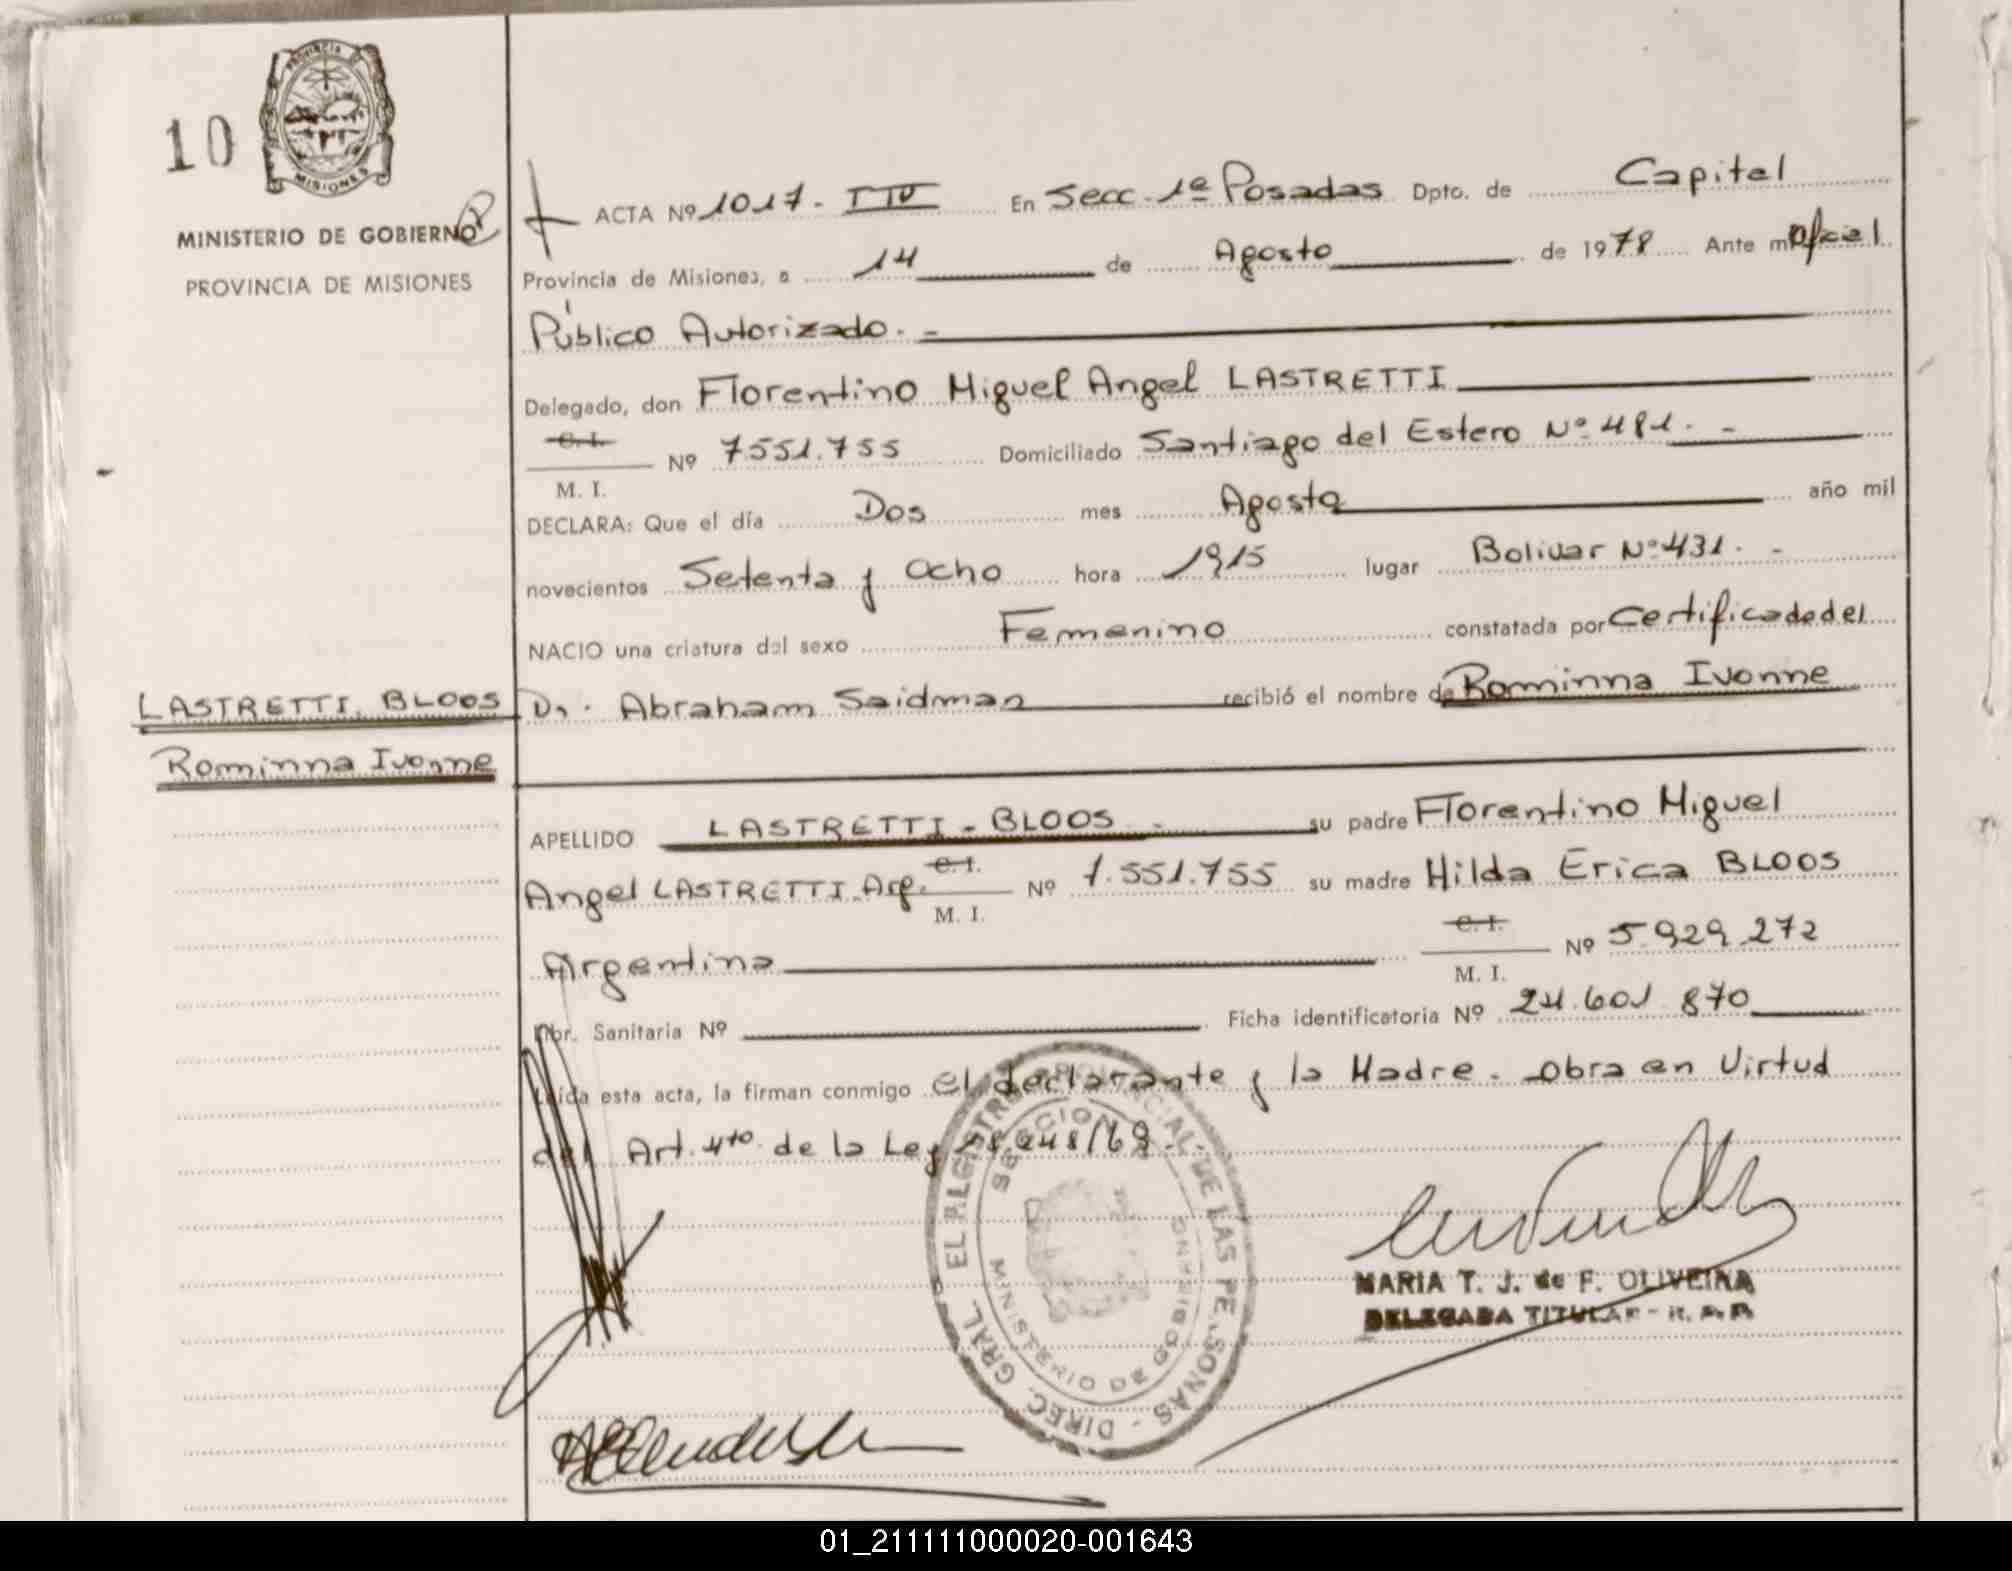 10
PROVINCIA DE
MISIONES
MINISTERIO DE GOBIERNO
PROVINCIA DE MISIONES
ACTA Nº 1017. T IV En Secc. 1ª Posadas Dpto. de Capital
Provincia de Misiones, a 14 de Agosto de 1978 Ante mi Oficial
Público Autorizado. -
Delegado, don Florentino Miguel Angel LASTRETTI
C. I.
M. I. Nº 7551.755 Domiciliado Santiago del Estero Nº 481. -
DECLARA: Que el día Dos mes Agosto año mil
novecientos Setenta y Ocho hora 1915 lugar Bolivar Nº 431. -
NACIO una criatura del sexo Femenino constatada por Certificado del
LASTRETTI BLOOS
Rominna Ivonne
Dr. Abraham Saidman recibió el nombre de Rominna Ivonne
APELLIDO LASTRETTI - BLOOS - su padre Florentino Miguel
Angel LASTRETTI. Arg. C. I.
M. I. Nº 7.551.755 su madre Hilda Erica BLOOS
Argentina C. I.
M. I. Nº 5.929.272
Libr. Sanitaria Nº Ficha identificatoria Nº 24.601.870
Leída esta acta, la firman conmigo el declarante y la Madre. - Obra en Virtud
del Art. 4to. de la Ley 18248/69.
DIREC. GRAL. EL REGISTRO PROVINCIAL DE LAS PERSONAS -
SECCION 1ª
MINISTERIO DE GOBIERNO
MARIA T. J. de F. OLIVEIRA
DELEGADA TITULAR - R. P. P.
01_211111000020-001643